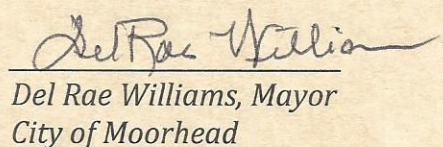 Del Rae Williams
Del Rae Williams, Mayor
City of Moorhead